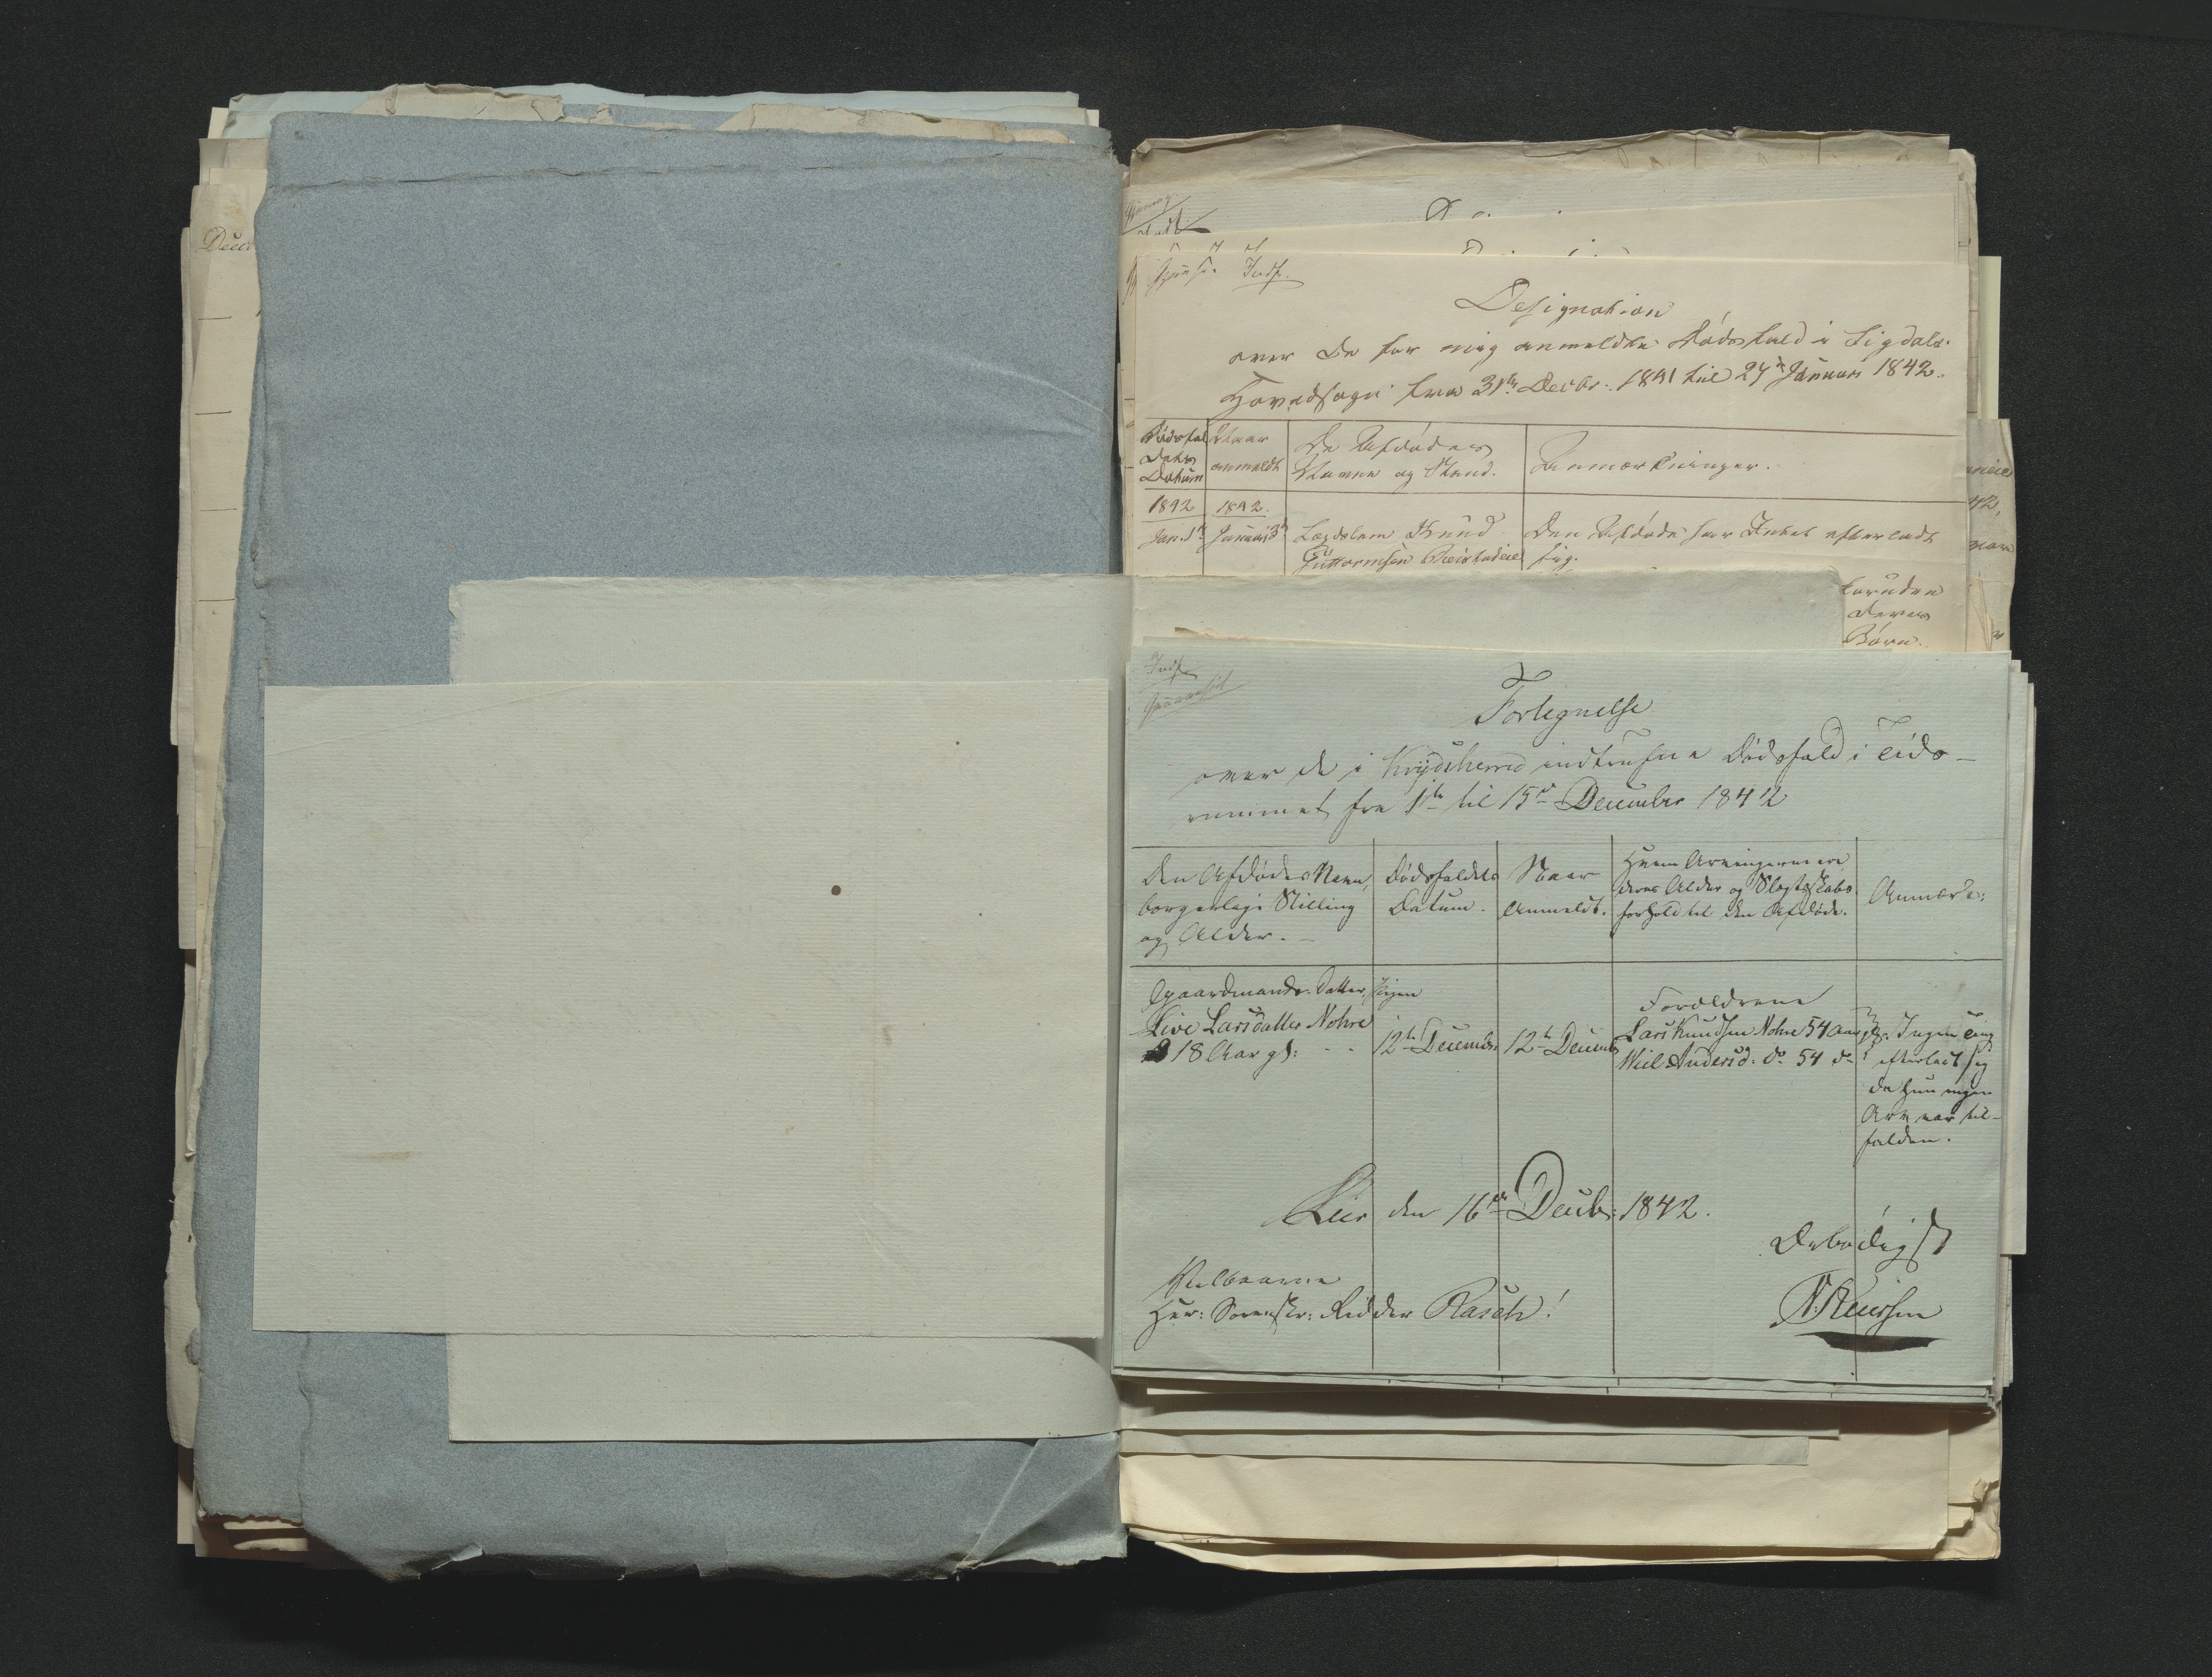 Indf.
Designation
over de for mig anmeldte Dødsfald i Sigdals
Hovedsogn fra 31te Decbr. 1841 til 27de Januari 1842.
Dødsfaldets Datum
Naar anmeldt
De Afdødes Navne og Stand.
Anmærkninger.
1842
1842.
Jan. 1te
Januari 3de
Lægdslem Knud
Guttormsen
Den Afdøde har Intet efterladt
sig.
foruden
deres
Børn.
Indf.
Fortegnelse
over de i Krydsherred indtrufne Dødsfald i Tids-
rummet fra 1te til 15de December 1842
Den Afdødes Navn,
borgerlige Stilling
og Alder. -
Dødsfaldets
Datum.
Naar
Anmeldt.
Hvem Arvingerne ere
deres Alder og Slægtskabs
forhold til den Afdøde.
Anmærk:
Gaardmands-Datter, Pigen
Live Larsdatter Nohre
18 Aar gl:
12te Decembr:
12te Decembr
Forældrene
Lars Knudsen Nohre 54 Aar
Andersd: do 54 do
Ingen Ting
efterladt sig
da hun ingen
Arv var til-
falden.
Lier den 16de Decbr: 1842.
Ærbødigst
Velbaarne
Herr: Sorenskr: Ridder Rasch!